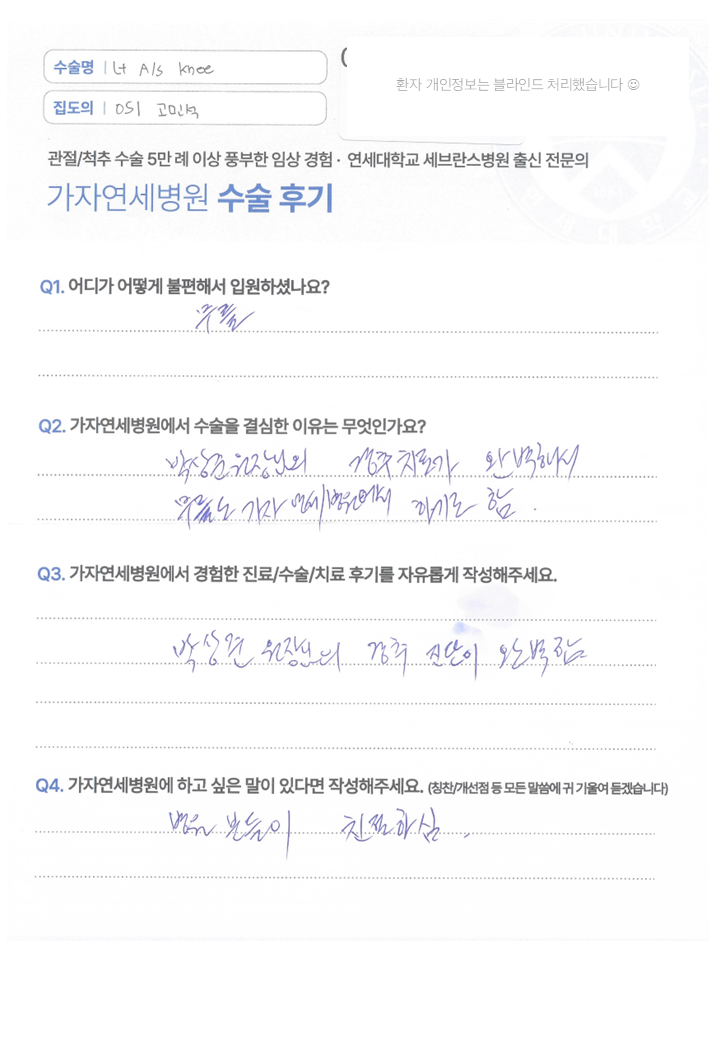 수술명 | Lt A/S knee
환자 개인정보는 블라인드 처리했습니다 ☺
집도의 | OS1 고민석
관절/척추 수술 5만 례 이상 풍부한 임상 경험 · 연세대학교 세브란스병원 출신 전문의
가자연세병원 수술 후기
Q1. 어디가 어떻게 불편해서 입원하셨나요?
무릎
Q2. 가자연세병원에서 수술을 결심한 이유는 무엇인가요?
박상준 원장님의 경추 치료가 완벽해서
무릎도 가자 연세병원에서 하기로 함.
Q3. 가자연세병원에서 경험한 진료/수술/치료 후기를 자유롭게 작성해주세요.
원장님의 경추 진단이 완벽함
Q4. 가자연세병원에 하고 싶은 말이 있다면 작성해주세요. (칭찬/개선점 등 모든 말씀에 귀 기울여 듣겠습니다)
병원 분들이 친절하심.